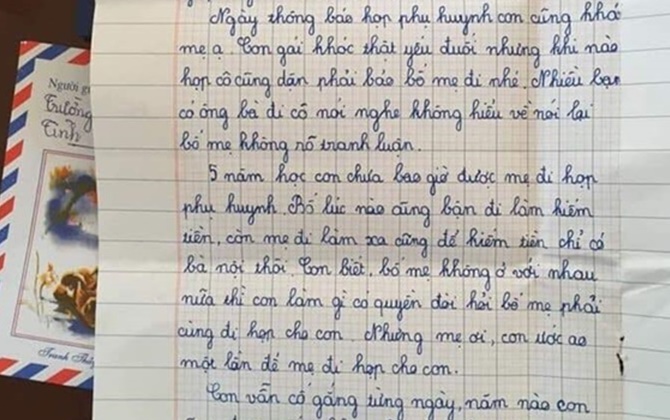 Người g
Trường
Tỉnh
Tranh Thêu
Ngày thông báo họp phụ huynh con cũng khó
mẹ ạ. Con gái khóc thật yếu đuối nhưng khi nào
họp cô cũng dặn phải bảo bố mẹ đi nhé. Nhiều bạn
có ông bà đi cô nói nghe không hiểu về nói lại
bố mẹ không rõ tranh luận.
5 năm học con chưa bao giờ được mẹ đi họp
phụ huynh. Bố lúc nào cũng bận đi làm kiếm
tiền, còn mẹ đi làm xa cũng để kiếm tiền chỉ có
bà nội thôi. Con biết, bố mẹ không ở với nhau
nữa thì con làm gì có quyền đòi hỏi bố mẹ phải
cùng đi họp cho con. Nhưng mẹ ơi, con ước ao
một lần để mẹ đi họp cho con.
Con vẫn cố gắng từng ngày, năm nào con